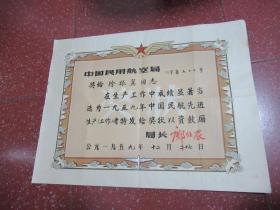 中国民用航空局
奖给 徐振
同志
在生产工作中成绩显著当
选为一九五九年中国民航先进
生产工作者特发给奖状以资鼓励
局长 邝任农
公元一九五九年十二月 日